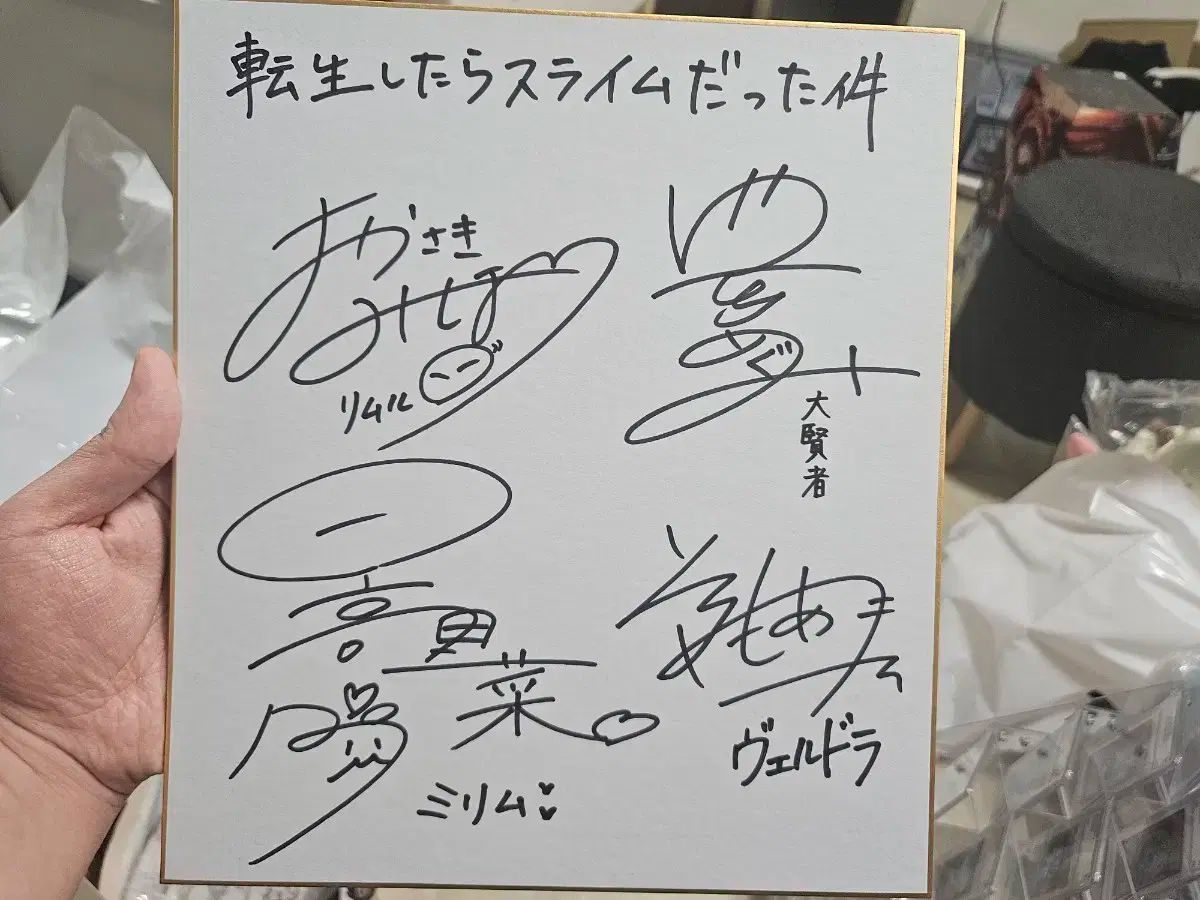 転生したらスライムだった件
おかさき
みほ
リムル
大賢者
日高里菜
ミリム
ともあき
ヴェルドラ